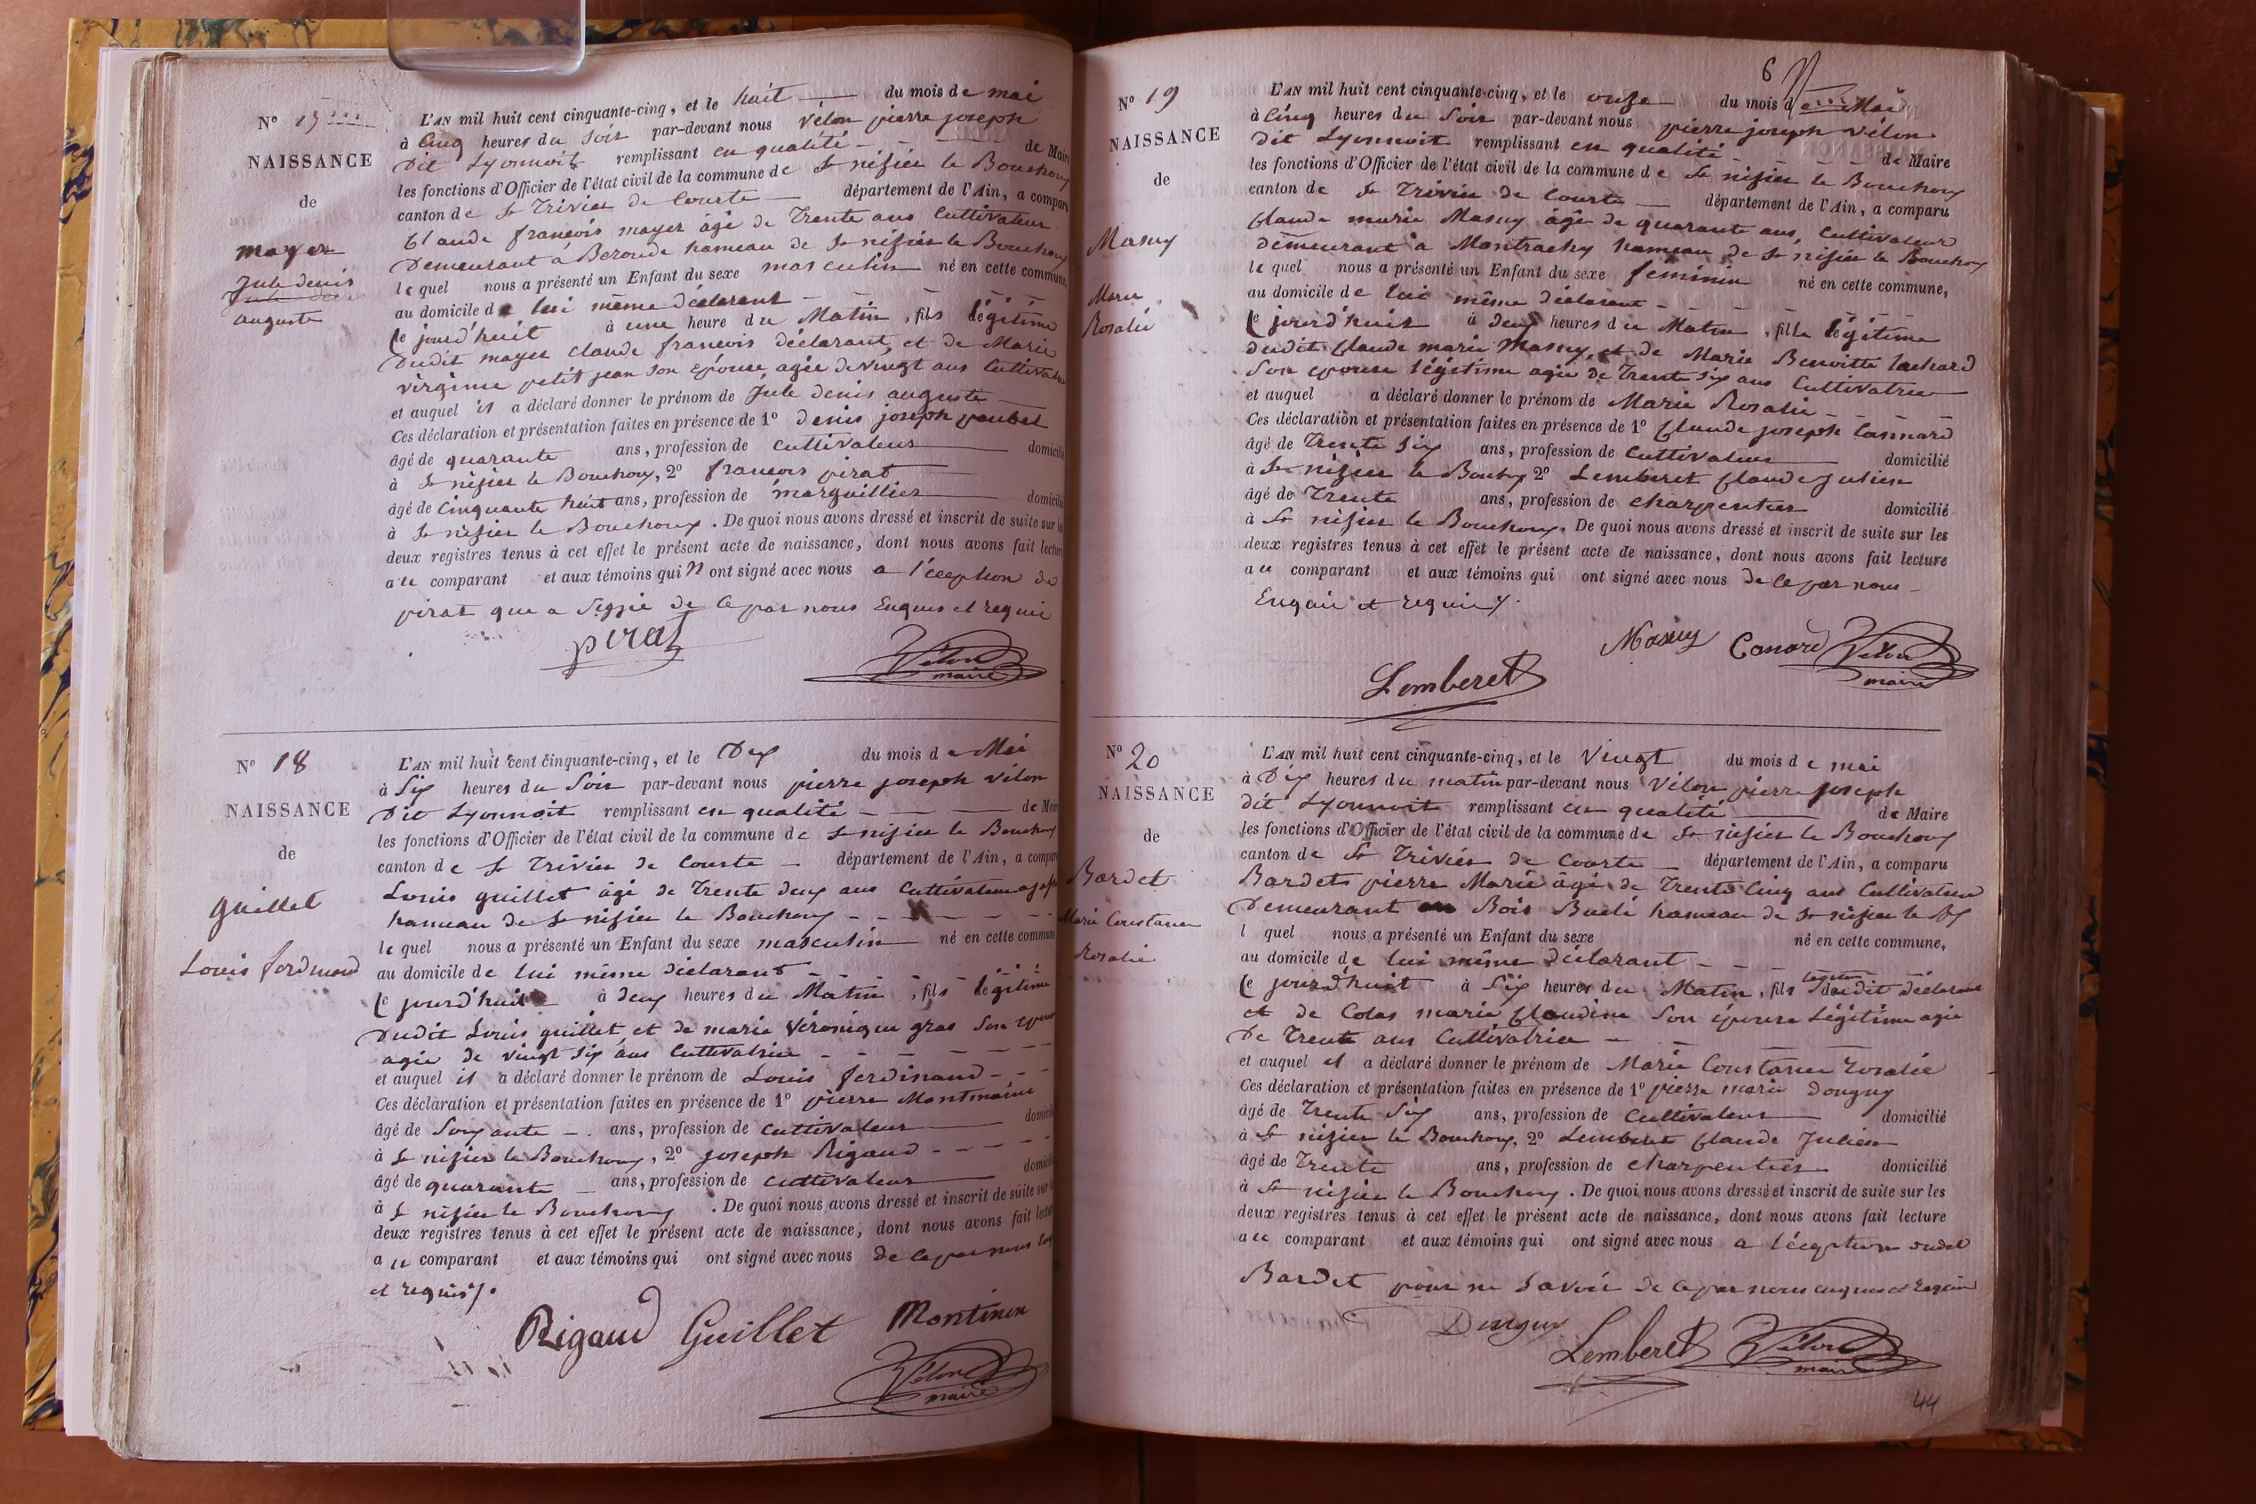 N° 17
NAISSANCE
de
mayer
Jule denis
auguste
L'AN mil huit cent cinquante-cinq, et le huit du mois de mai
à Cinq heures du Soir par-devant nous vélon pierre joseph
Dit Lyonnoit remplissant en qualité de Maire
les fonctions d'Officier de l'état civil de la commune de St nisier le Bouchoux
canton de St Trivier de Courte département de l'Ain, a comparu
Claude francois mayer âgé de Trente ans Cultivateur
Demeurant à Beronde hameau de St nisier le Bouchoux
lequel nous a présenté un Enfant du sexe masculin né en cette commune,
au domicile de lui même déclarant
Ce jourd'huit à une heure du Matin, fils légitime
Dudit mayer claude francois déclarant, et de Marie
virginie petit jean Son épouse agée de vingt ans Cultivatrice
et auquel il a déclaré donner le prénom de Jule denis auguste
Ces déclaration et présentation faites en présence de 1° denis joseph poubel
âgé de quarante ans, profession de cultivateur domicilié
à St nisier le Bouchoux, 2° francois pirat
âgé de Cinquante huit ans, profession de marguillier domicilié
à St nisier le Bouchoux. De quoi nous avons dressé et inscrit de suite sur les
deux registres tenus à cet effet le présent acte de naissance, dont nous avons fait lecture
au comparant et aux témoins qui n ont signé avec nous a l'éception de
pirat que a Signé de ce par nous Enquis et requis
pirat
Vélon
maire
N° 18
NAISSANCE
de
guillet
Louis ferdinand
L'AN mil huit cent cinquante-cinq, et le Dix du mois de Mai
à Six heures du Soir par-devant nous pierre joseph vélon
Dit Lyonnoit remplissant en qualité de Maire
les fonctions d'Officier de l'état civil de la commune de St nisier le Bouchoux
canton de St Trivier de Courte département de l'Ain, a comparu
Louis guillet âgé de Trente deux ans Cultivateur
hameau de St nisier le Bouchoux
lequel nous a présenté un Enfant du sexe masculin né en cette commune
au domicile de lui même déclarant
Ce jourd'huit à deux heures du Matin, fils légitime
Dudit Louis guillet et de marie véronique gras Son épouse
agée de vingt six ans Cultivatrice
et auquel il a déclaré donner le prénom de Louis ferdinand
Ces déclaration et présentation faites en présence de 1° pierre Montmoine
âgé de Soixante ans, profession de cultivateur domicilié
à St nisier le Bouchoux, 2° joseph Rigaud
âgé de quarante ans, profession de cultivateur domicilié
à St nisier le Bouchoux. De quoi nous avons dressé et inscrit de suite sur les
deux registres tenus à cet effet le présent acte de naissance, dont nous avons fait lecture
au comparant et aux témoins qui ont signé avec nous de ce par nous
et requis.
Rigaud Guillet Montinon
Vélon
maire
6
N° 19
NAISSANCE
de
Masuy
Marie
Rosalie
L'AN mil huit cent cinquante-cinq, et le onze du mois de Mai
à Cinq heures du Soir par-devant nous pierre joseph vélon
dit Lyonnoit remplissant en qualité de Maire
les fonctions d'Officier de l'état civil de la commune de St nisier le Bouchoux
canton de St Trivier de Courte département de l'Ain, a comparu
Claude marie Masuy âgé de quarante ans, Cultivateur
demeurant à Montrachy hameau de St nisier le Bouchoux
lequel nous a présenté un Enfant du sexe féminin né en cette commune,
au domicile de lui même déclarant
Ce jourd'huit à deux heures du Matin, fille légitime
dudit Claude marie Masuy et de Marie Benoitte lachard
Son epouse légitime agée de Trente Six ans Cultivatrice
et auquel a déclaré donner le prénom de Marie Rosalie
Ces déclaration et présentation faites en présence de 1° Claude joseph Cannard
âgé de Trente Six ans, profession de Cultivateur domicilié
à St nisier le Bouchy 2° Lemberet Claude Julien
âgé de Trente ans, profession de charpentier domicilié
à St nisier le Bouchoux. De quoi nous avons dressé et inscrit de suite sur les
deux registres tenus à cet effet le présent acte de naissance, dont nous avons fait lecture
au comparant et aux témoins qui ont signé avec nous de ce par nous
Enquis et requis.
Masuy Canard Vélon
maire
Lemberet
N° 20
NAISSANCE
de
Bardet
Marie Constance
Rosalie
L'AN mil huit cent cinquante-cinq, et le Vingt du mois de mai
à Dix heures du matin par-devant nous Vélon pierre joseph
dit Lyonnoit remplissant en qualité de Maire
les fonctions d'Officier de l'état civil de la commune de St nisier le Bouchoux
canton de St Trivier de Courte département de l'Ain, a comparu
Bardet pierre Marie âgé de Trente Cinq ans Cultivateur
Demeurant au Bois Buclé hameau de St nisier le Bx
l quel nous a présenté un Enfant du sexe né en cette commune,
au domicile de lui même déclarant
Ce jourd'huit à Six heures du Matin, fils légitime dudit déclarant
et de Colas marie Claudine Son épouse Légitime agée
De Trente ans Cultivatrice
et auquel il a déclaré donner le prénom de Marie Constance rosalie
Ces déclaration et présentation faites en présence de 1° pierre marie Donguy
âgé de Trente Six ans, profession de Cultivateur domicilié
à St nisier le Bouchoux, 2° Lemberet Claude Julien
âgé de Trente ans, profession de charpentier domicilié
à St nisier le Bouchoux. De quoi nous avons dressé et inscrit de suite sur les
deux registres tenus à cet effet le présent acte de naissance, dont nous avons fait lecture
au comparant et aux témoins qui ont signé avec nous a l'éception dudit
Bardet pour ne Savoir de ce par nous enquis et Requis
Donguy
Lemberet Vélon
maire
44